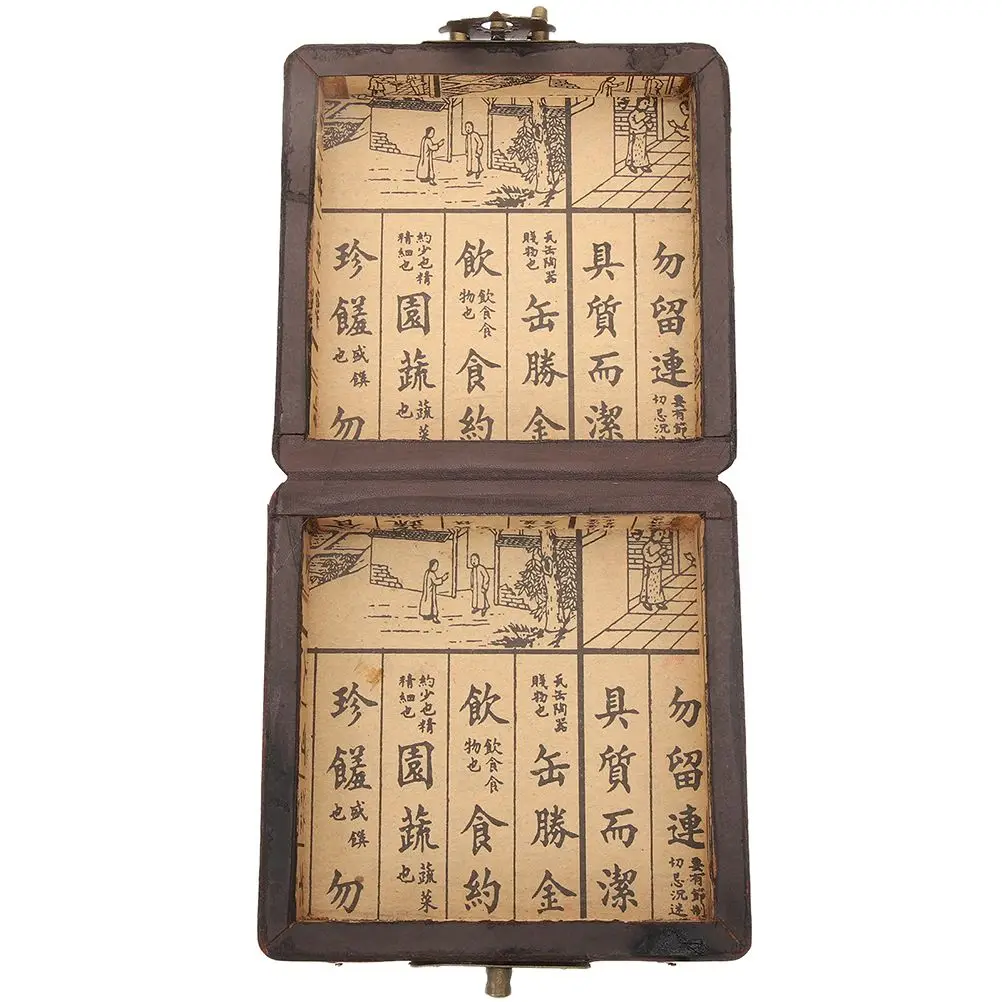 勿留連要有節切忌沉迷
具質而潔
瓦缶陶器賤物也缶勝金
飲飲食食物也食約
約少也精精細也園蔬蔬菜也
珍饈或饌也勿
勿留連要有節制切忌沉迷
具質而潔
瓦缶陶器賤物也缶勝金
飲飲食食物也食約
約少也精精細也園蔬蔬菜也
珍饈或饌也勿